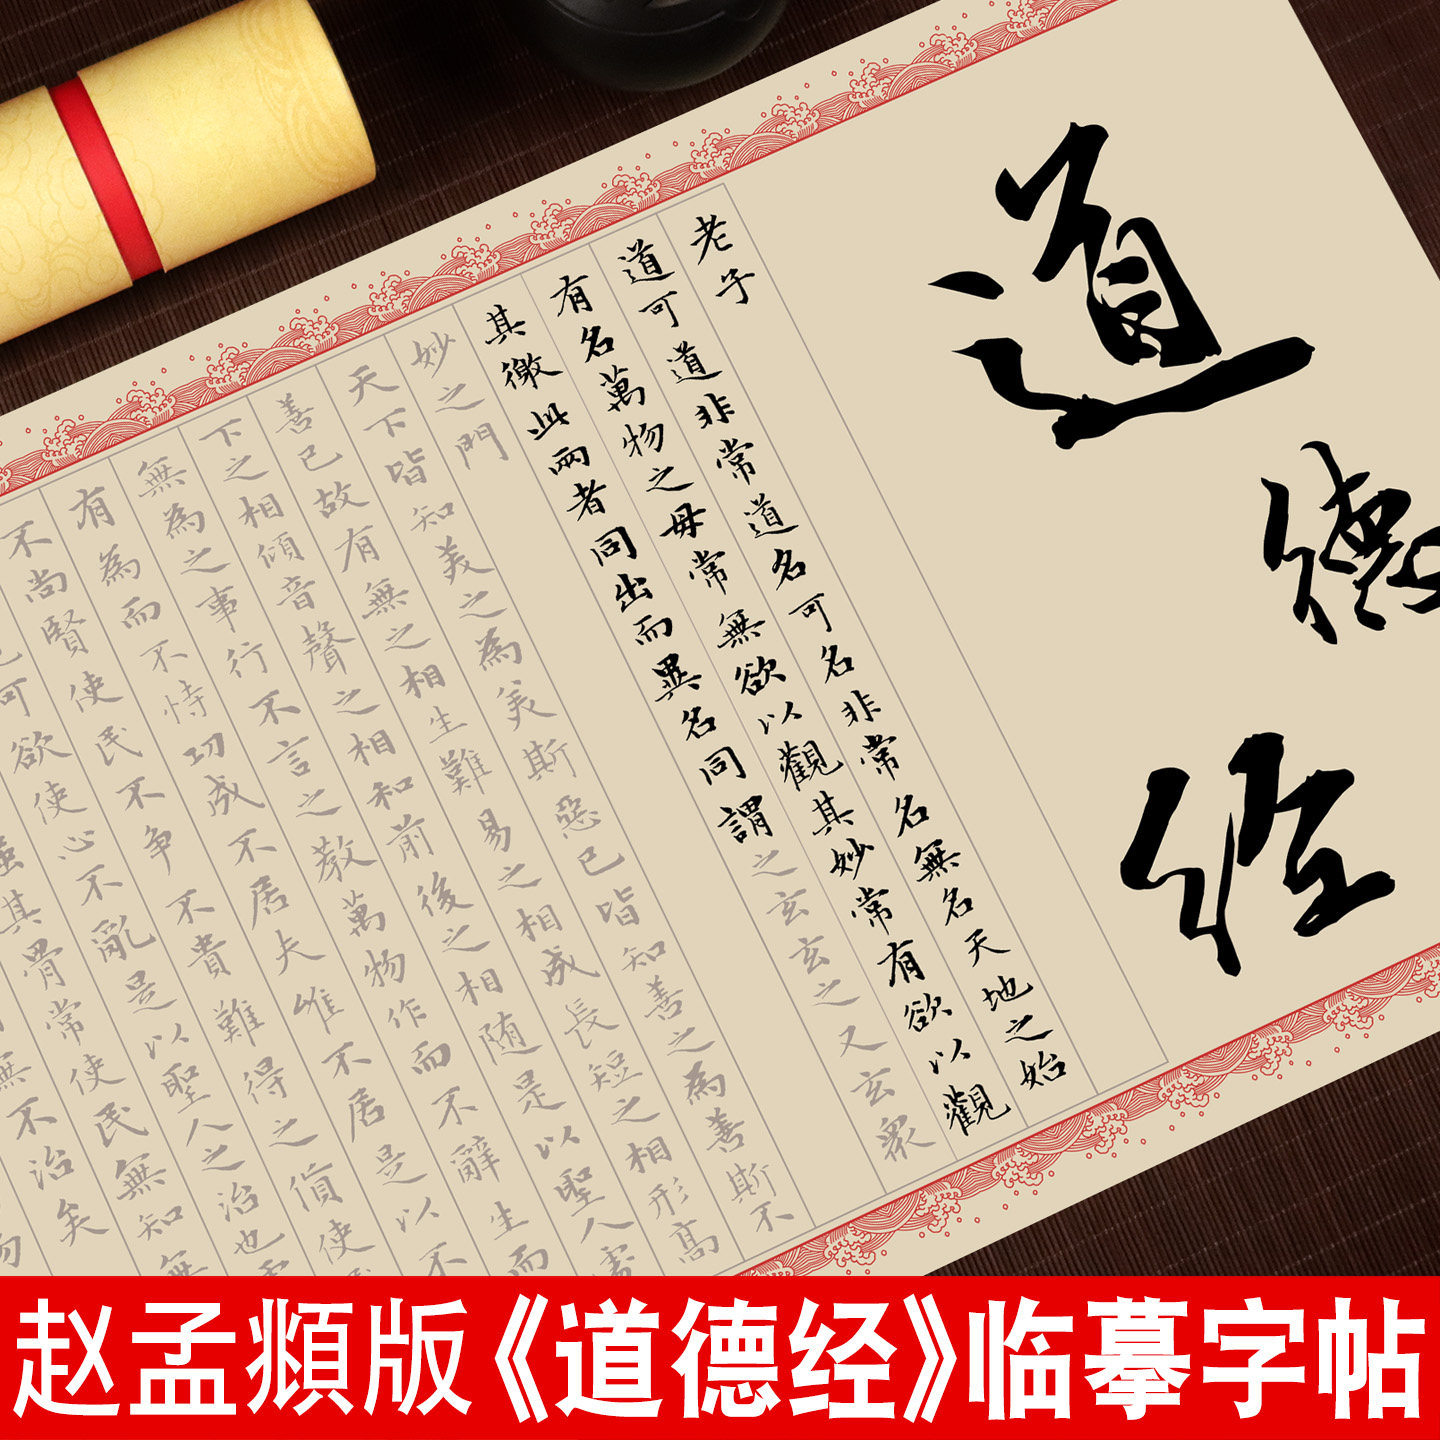 道德经
老子
道可道非常道名可名非常名無名天地之始
有名萬物之母常無欲以觀其妙常有欲以觀
其徼此兩者同出而異名同謂之玄玄之又玄衆
妙之門
天下皆知美之為美斯惡已皆知善之為善斯不
善已故有無之相生難易之相成長短之相形高
下之相傾音聲之相和前後之相随是以聖人處
無為之事行不言之教萬物作而不辭生而
有為而不恃功成不居夫唯不居是以不
不尚賢使民不争不貴難得之貨使民
可欲使心不亂是以聖人之治也
強其骨常使民無知無
無不治矣
赵孟頫版《道德经》临摹字帖